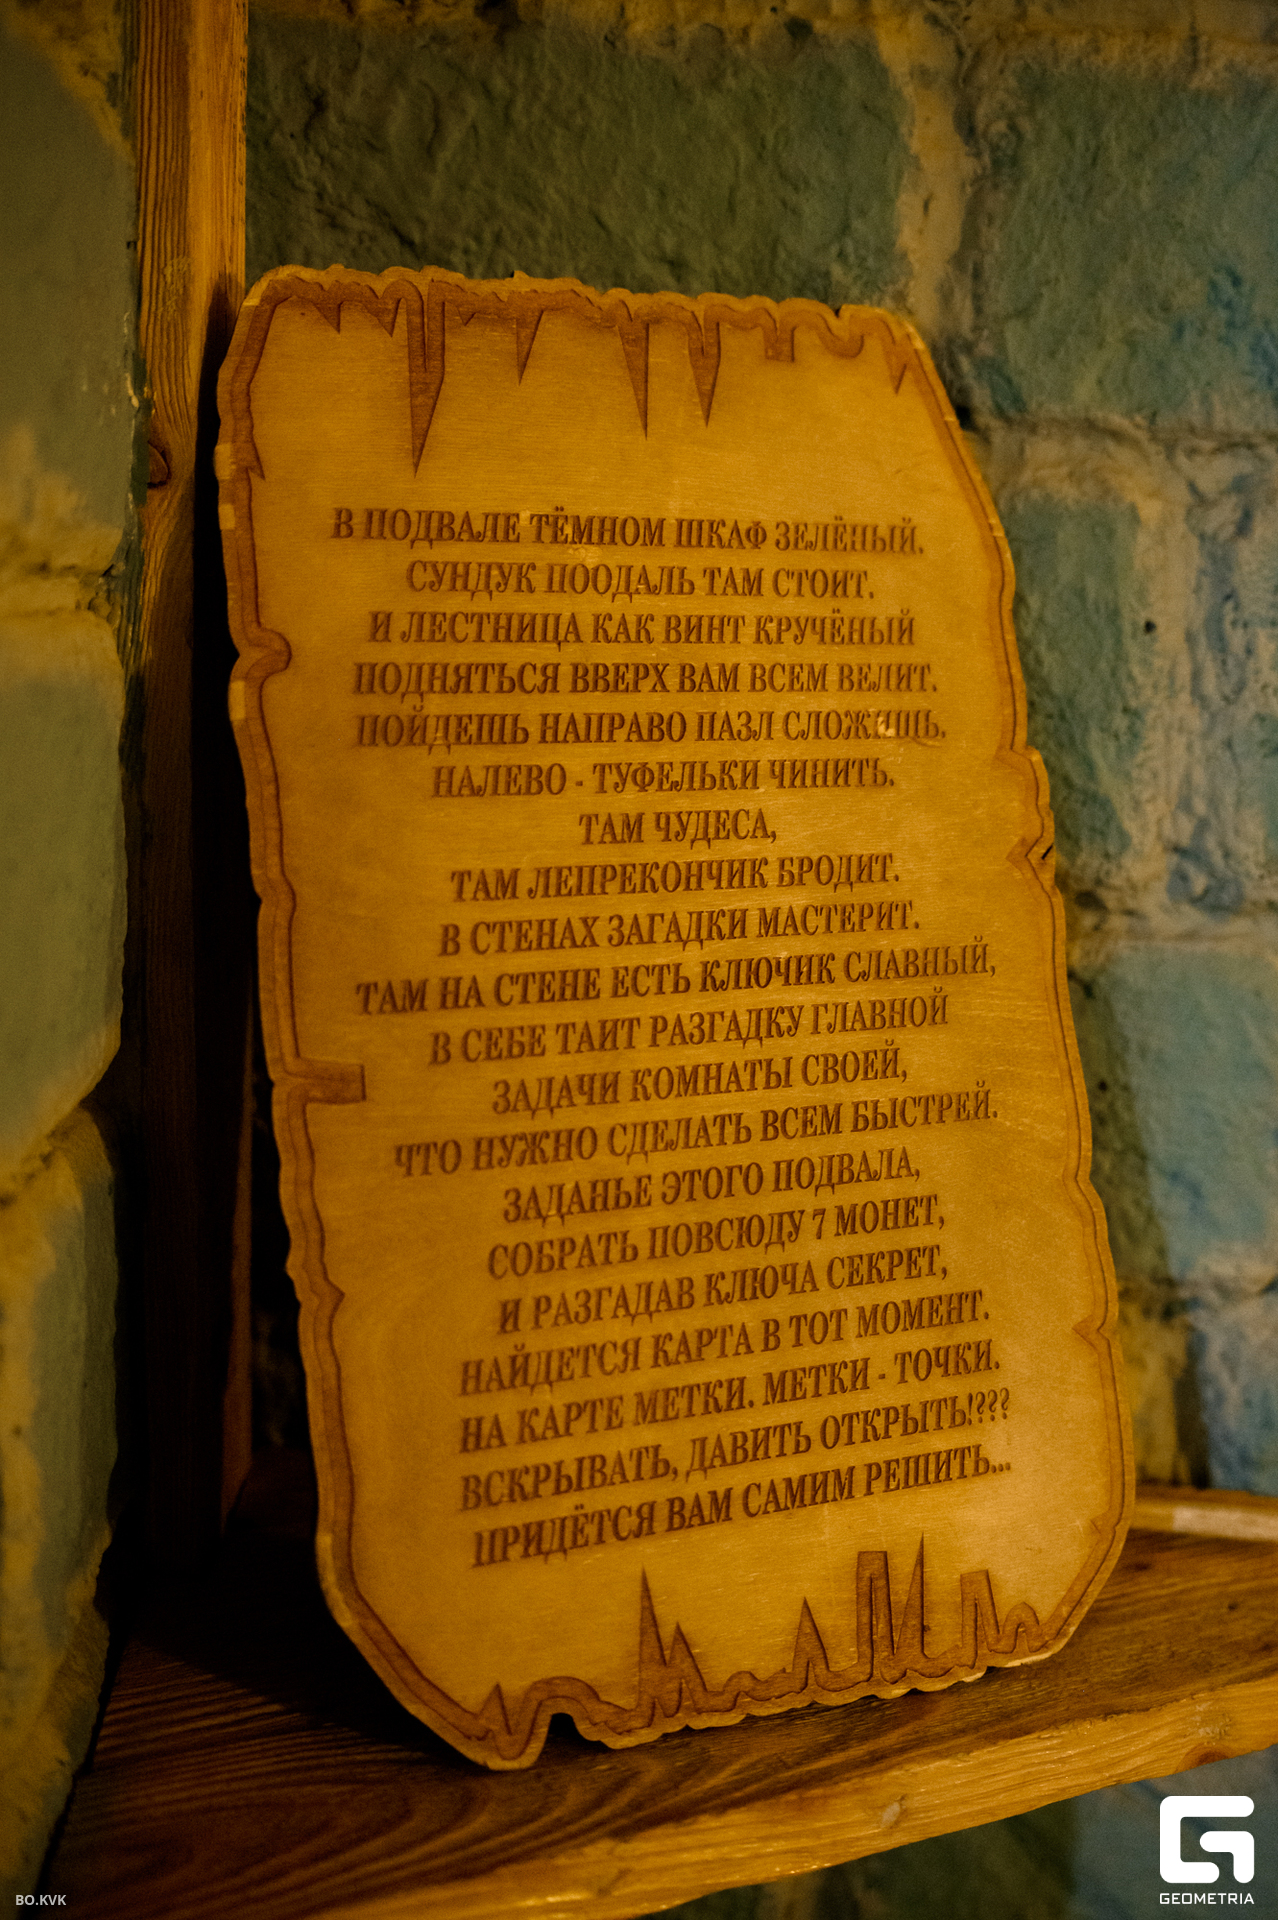 В ПОДВАЛЕ ТЁМНОМ ШКАФ ЗЕЛЁНЫЙ.
СУНДУК ПООДАЛЬ ТАМ СТОИТ.
И ЛЕСТНИЦА КАК ВИНТ КРУЧЁНЫЙ
ПОДНЯТЬСЯ ВВЕРХ ВАМ ВСЕМ ВЕЛИТ.
ПОЙДЕШЬ НАПРАВО ПАЗЛ СЛОЖИШЬ.
НАЛЕВО - ТУФЕЛЬКИ ЧИНИТЬ.
ТАМ ЧУДЕСА,
ТАМ ЛЕПРЕКОНЧИК БРОДИТ.
В СТЕНАХ ЗАГАДКИ МАСТЕРИТ.
ТАМ НА СТЕНЕ ЕСТЬ КЛЮЧИК СЛАВНЫЙ,
В СЕБЕ ТАИТ РАЗГАДКУ ГЛАВНОЙ
ЗАДАЧИ КОМНАТЫ СВОЕЙ,
ЧТО НУЖНО СДЕЛАТЬ ВСЕМ БЫСТРЕЙ.
ЗАДАНЬЕ ЭТОГО ПОДВАЛА,
СОБРАТЬ ПОВСЮДУ 7 МОНЕТ,
И РАЗГАДАВ КЛЮЧА СЕКРЕТ,
НАЙДЕТСЯ КАРТА В ТОТ МОМЕНТ.
НА КАРТЕ МЕТКИ. МЕТКИ - ТОЧКИ.
ВСКРЫВАТЬ, ДАВИТЬ ОТКРЫТЬ!???
ПРИДЁТСЯ ВАМ САМИМ РЕШИТЬ...
BO.KVK
GEOMETRIA